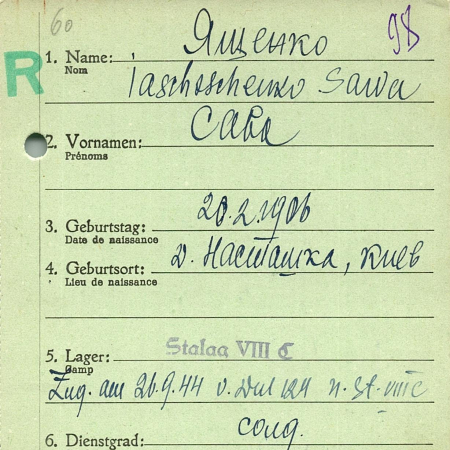 60
98
R
Ященко
1. Name:
Nom
Iaschtschenko Sawa
Сава
2. Vornamen:
Prénoms
20.2.1906
3. Geburtstag:
Date de naissance
д. Насташка, Киев
4. Geburtsort:
Lieu de naissance
Stalag VIII C
5. Lager:
Camp
Zug. am 26.9.44 v. Dul 124 n. St. VIIIC
6. Dienstgrad:
солд.